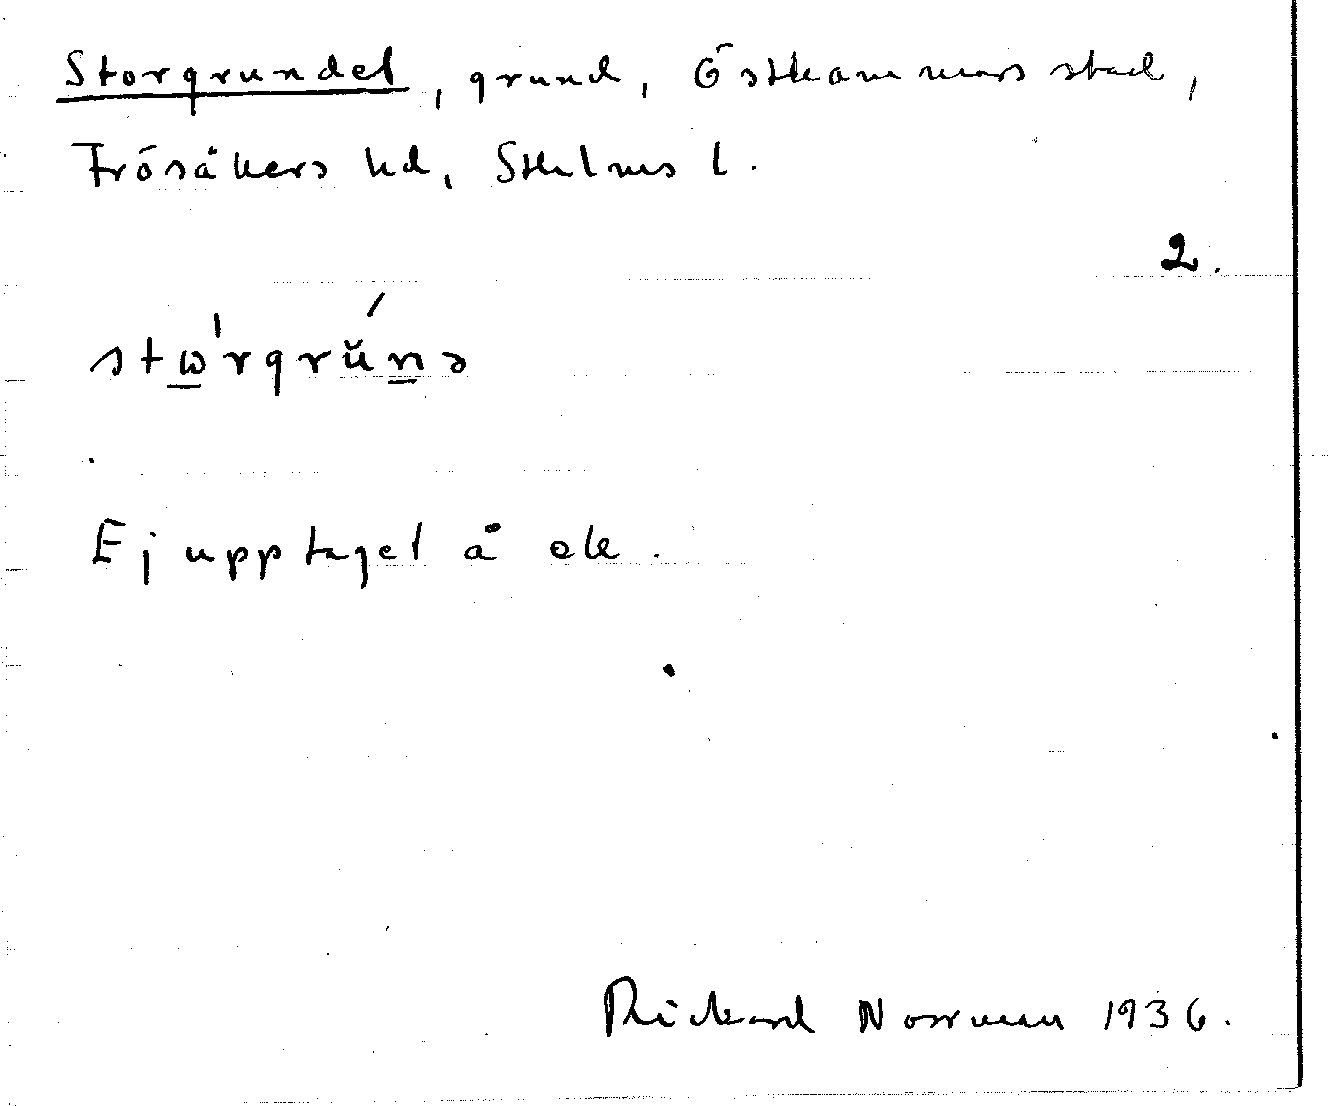 Storgrundet, grund, Östhammars stad,
Frösåkers hd, Sthlms l.
2.
stω̲'rgrŭ́n̲ə
Ej upptaget å ek.
Rickard Norrman 1936.